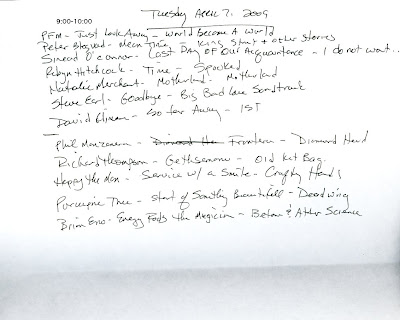 Tuesday April 7, 2009
9:00-10:00
PFM - Just Look Away - World Become A World
Peter Blegvad - Mean Time - King Strut + other Stories
Sinead O'Connor - Last Day of Our Acquaintance - I do not want..
Robyn Hitchcock - Time - Spooked
Natalie Merchant - Motherland - Motherland
Steve Earl - Goodbye - Big Bad Love Soundtrack
David Gilmour - So far Away - 1ST
Phil Manzanera - Frontera - Diamond Head
Richard Thompson - Gethsemane - Old Kit Bag
Happy the Man - Service w/ a Smile - Crafty Hands
Porcupine Tree - Start of Something Beautiful - Deadwing
Brian Eno - Energy Fools the Magician - Before & After Science